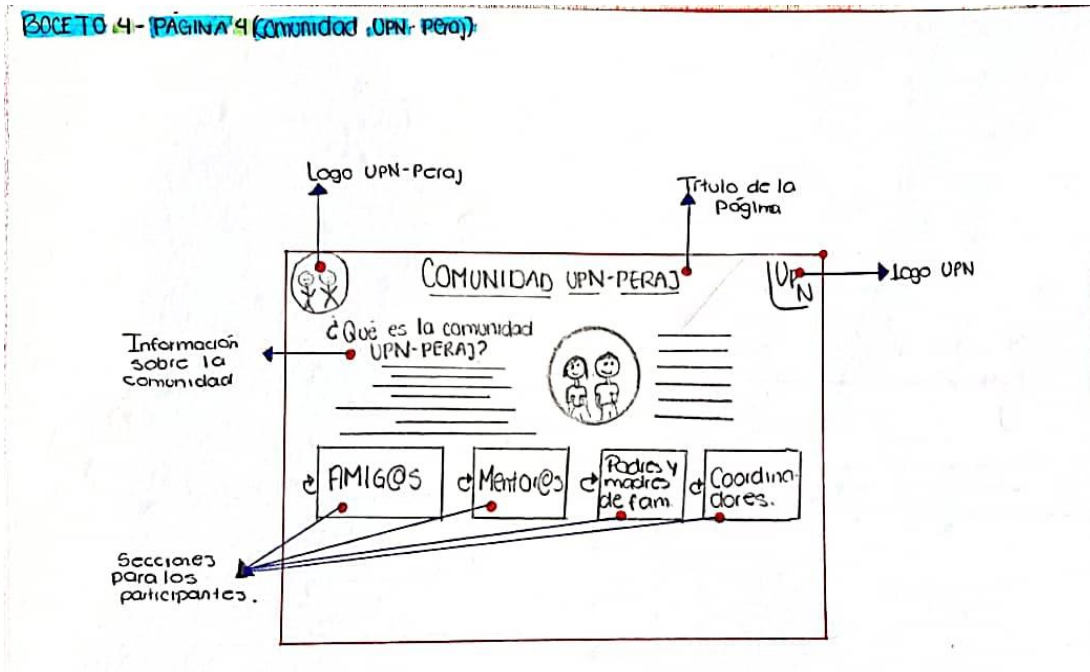 BOCETO 4 - PÁGINA 4 (Comunidad UPN- Peraj):
Logo UPN-Peraj
Título de la
Página
COMUNIDAD UPN-PERAJ
UPN
Logo UPN
¿Qué es la comunidad
UPN-PERAJ?
Información
sobre la
comunidad
AMIG@S
Mentor@s
Padres y
madres
de fam.
Coordina-
dores.
Secciones
para los
participantes.